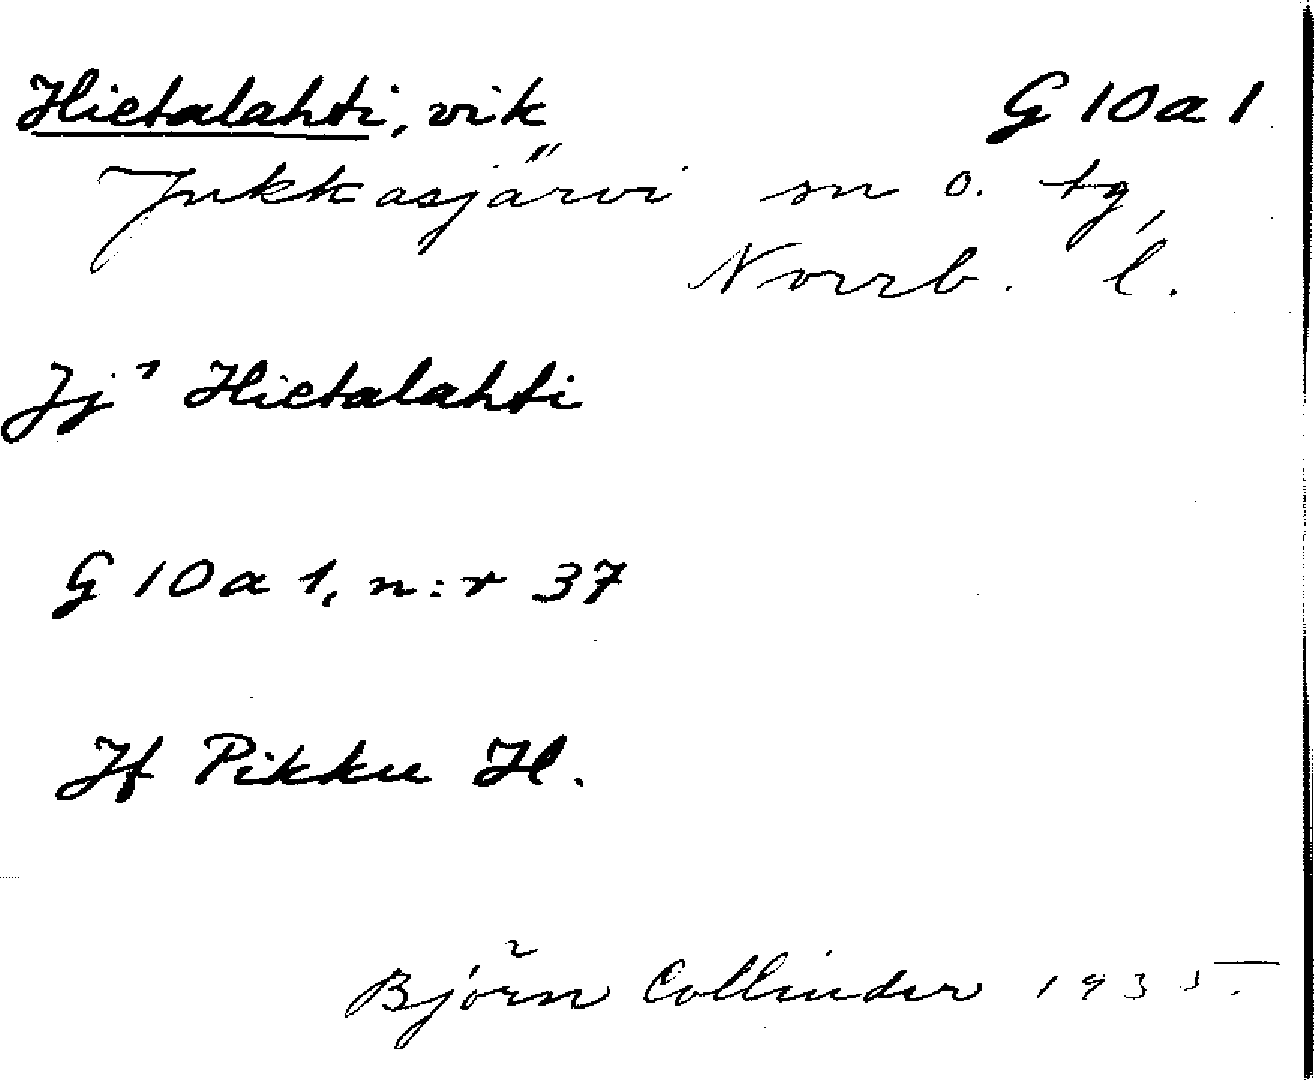 Hietalahti, vik G 10 a 1
Jukkasjärvi sn o. tg,
Norrb. l.
Jj¹ Hietalahti
G 10 a 1, n:r 37
Jf Pikku H.
Björn Collinder 1935.